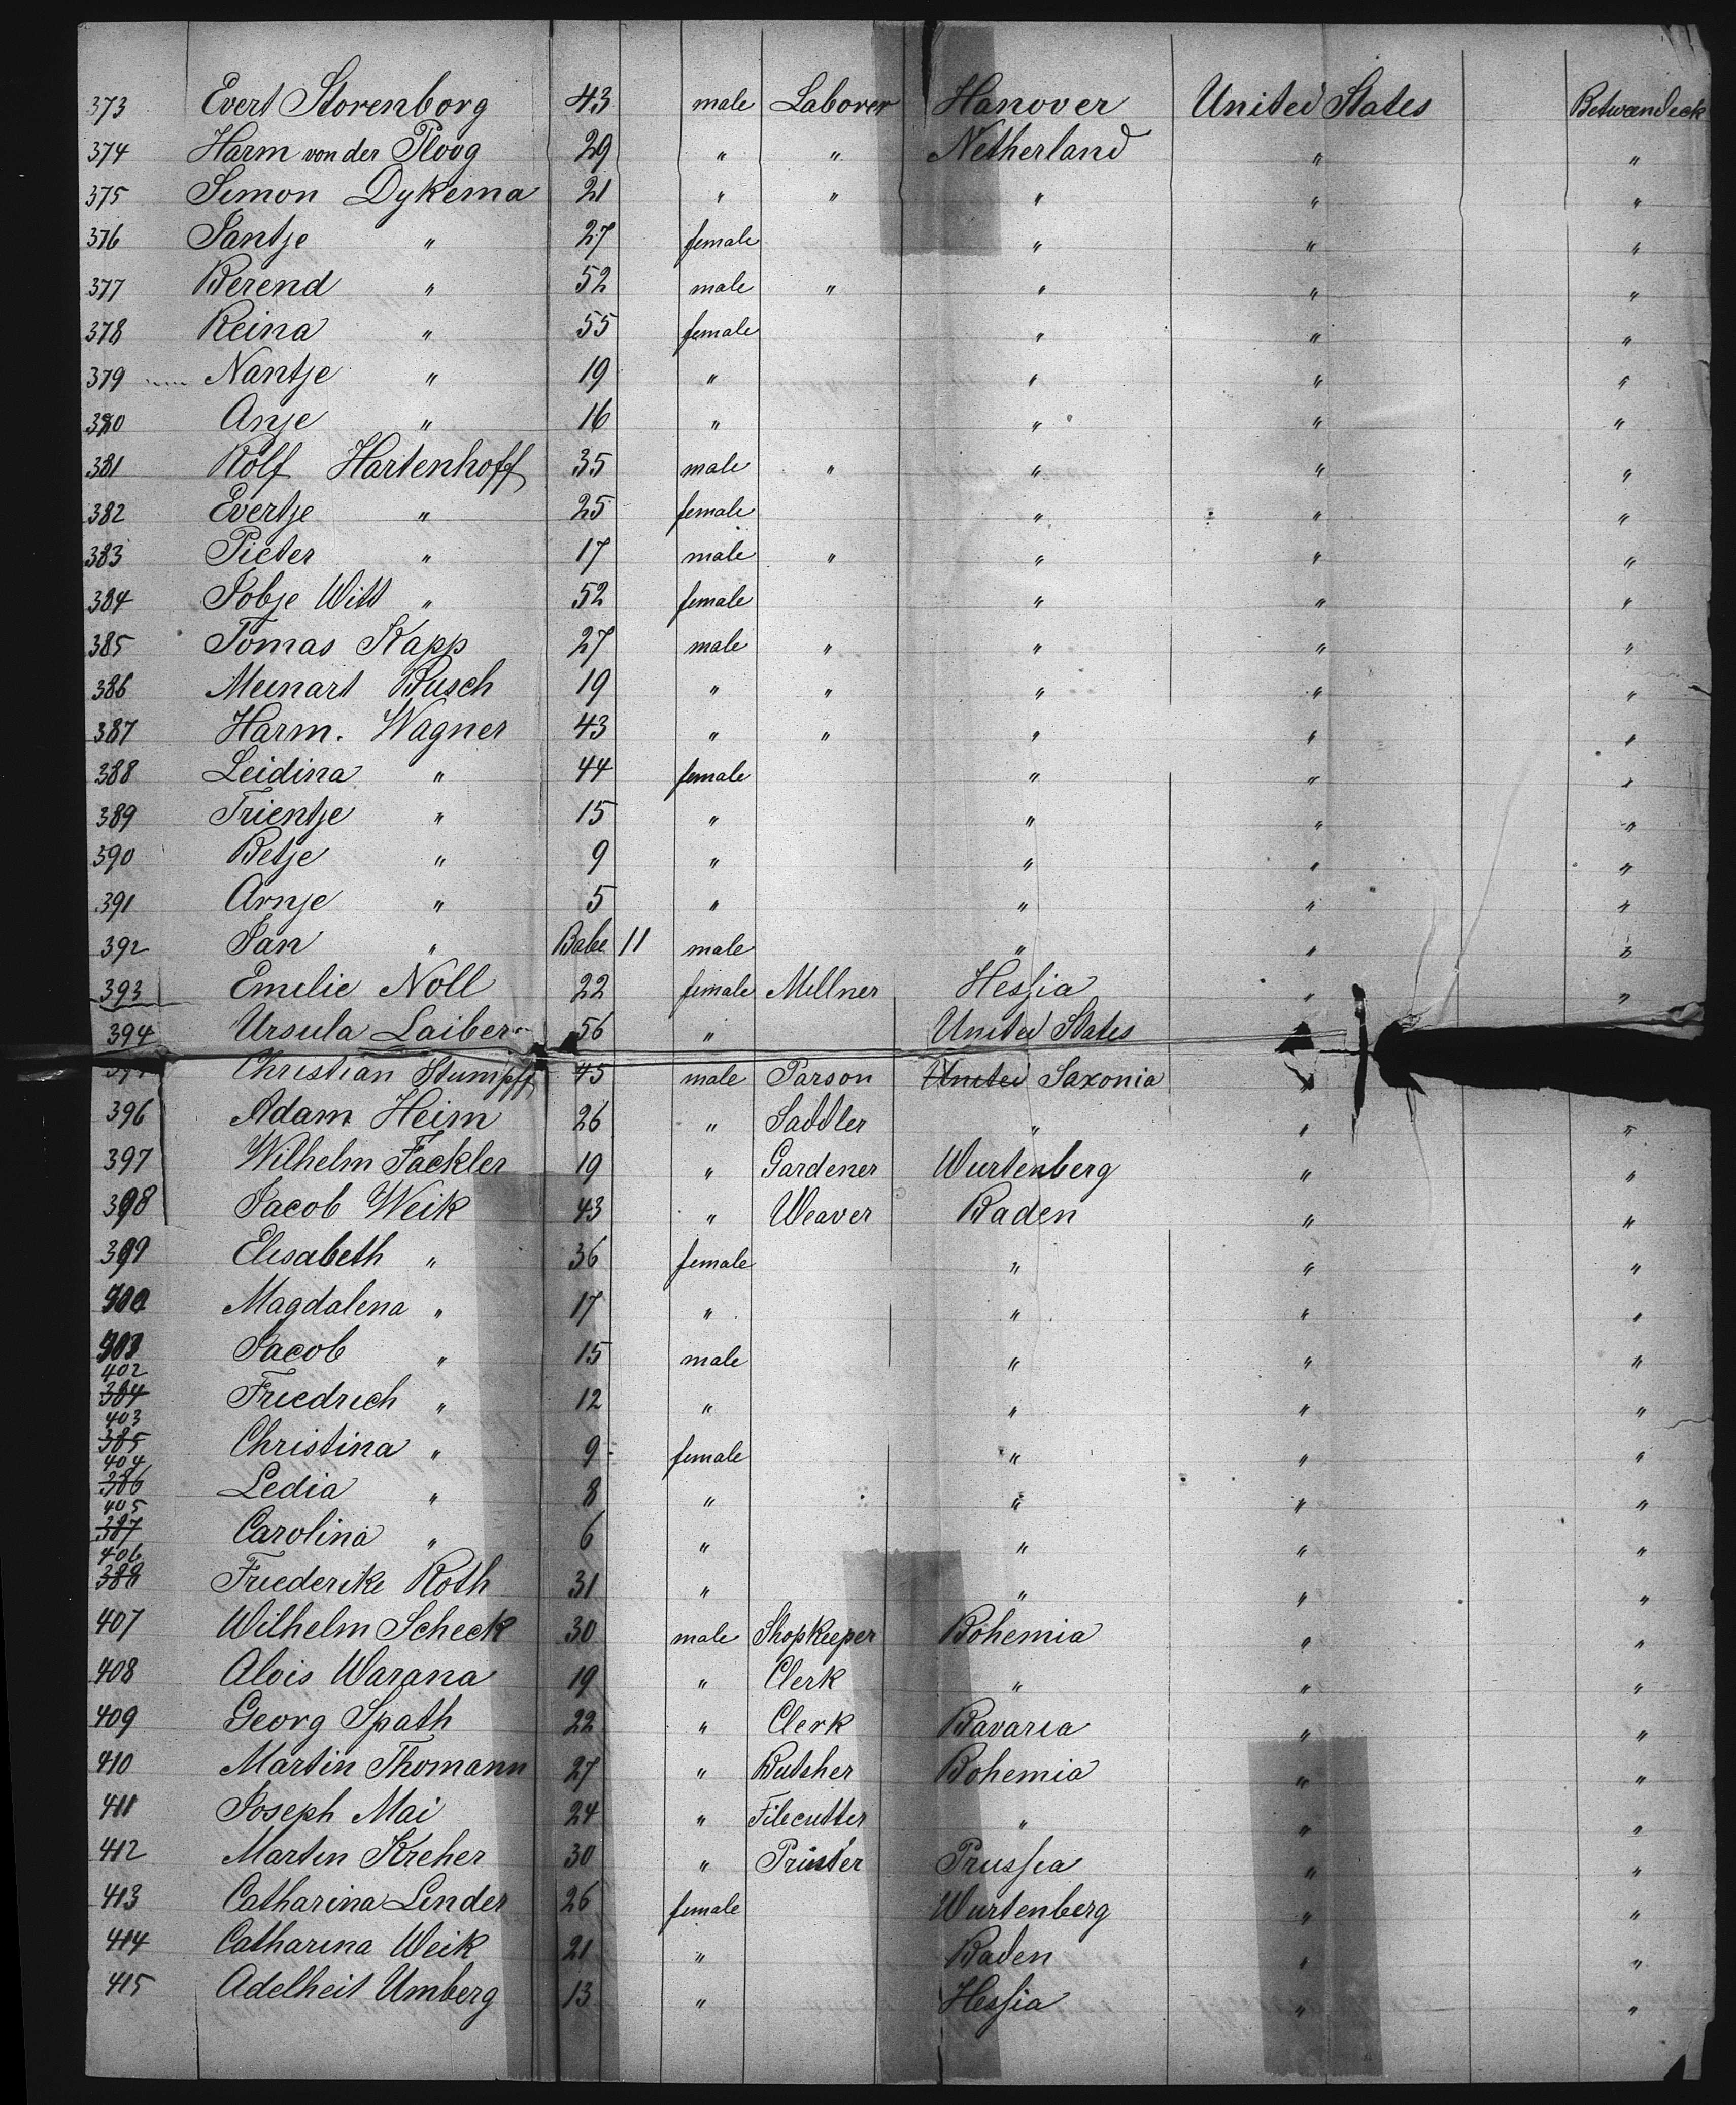 373 Evert Storenborg 43 male Laborer Hanover United States Betweendeck
374 Harm von der Ploog 29 " " Netherland " "
375 Simon Dykema 21 " " " " "
376 Jantje " 27 female " " "
377 Berend " 52 male " " " "
378 Reina " 55 female " " "
379 Nantje " 19 " " " "
380 Anje " 16 " " " "
381 Rolf Hartenhoff 35 male " " " "
382 Evertje " 25 female " " "
383 Pieter " 17 male " " " "
384 Jobje Witt " 52 female " " "
385 Tomas Kapp 27 male " " " "
386 Meinart Busch 19 " " " " "
387 Harm. Wagner 43 " " " " "
388 Leidina " 44 female " " "
389 Trientje " 15 " " " "
390 Betje " 9 " " " "
391 Arnje " 5 " " " "
392 Jan " Babe 11 male " " "
393 Emilie Noll 22 female Millner Hessia " "
394 Ursula Laiber 56 " United States
Christian Stumpff 45 male Parson United Saxonia "
396 Adam Heim 26 " Saddler " " "
397 Wilhelm Fackler 19 " Gardener Wurtenberg " "
398 Jacob Weik 43 " Weaver Baden " "
399 Elisabeth " 36 female " " "
400 Magdalena " 17 " " " "
Jacob " 15 male " " "
402 384 Friedrich " 12 " " " "
403 385 Christina " 9 female " " "
404 386 Ledia " 8 " " " "
405 387 Carolina " 6 " " " "
406 388 Friederike Roth 31 " " " "
407 Wilhelm Scheck 30 male Shopkeeper Bohemia " "
408 Alois Warana 19 " Clerk " " "
409 Georg Spath 22 " Clerk Bavaria " "
410 Martin Thomann 27 " Butsher Bohemia " "
411 Joseph Mai 24 " Filecutter " " "
412 Martin Kreher 30 " Printer Prussia " "
413 Catharina Linder 26 female Wurtenberg " "
414 Catharina Weik 21 " Baden " "
415 Adelheit Umberg 13 " Hessia " "